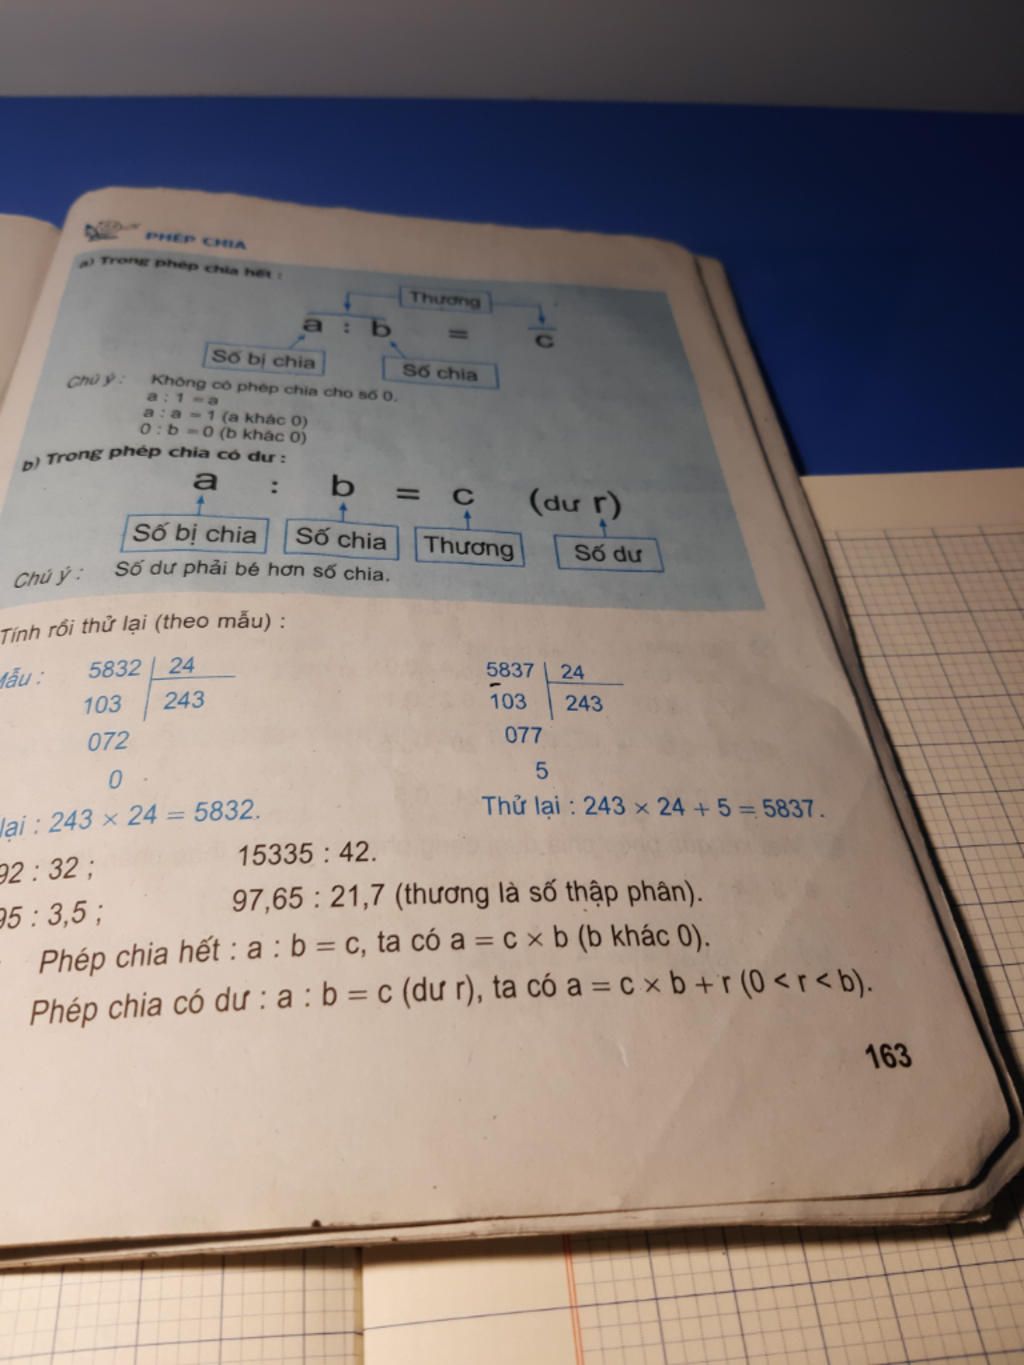 PHÉP CHIA
a) Trong phép chia hết :
Thương
a : b = c
Số bị chia Số chia
Chú ý : Không có phép chia cho số 0.
a : 1 = a
a : a = 1 (a khác 0)
0 : b = 0 (b khác 0)
b) Trong phép chia có dư :
a : b = c (dư r)
Số bị chia Số chia Thương Số dư
Chú ý : Số dư phải bé hơn số chia.
Tính rồi thử lại (theo mẫu) :
5832 24 5837 24
103 243 103 243
072 077
0 5
lại : 243 × 24 = 5832. Thử lại : 243 × 24 + 5 = 5837.
92 : 32 ; 15335 : 42.
95 : 3,5 ; 97,65 : 21,7 (thương là số thập phân).
Phép chia hết : a : b = c, ta có a = c × b (b khác 0).
Phép chia có dư : a : b = c (dư r), ta có a = c × b + r (0 < r < b).
163